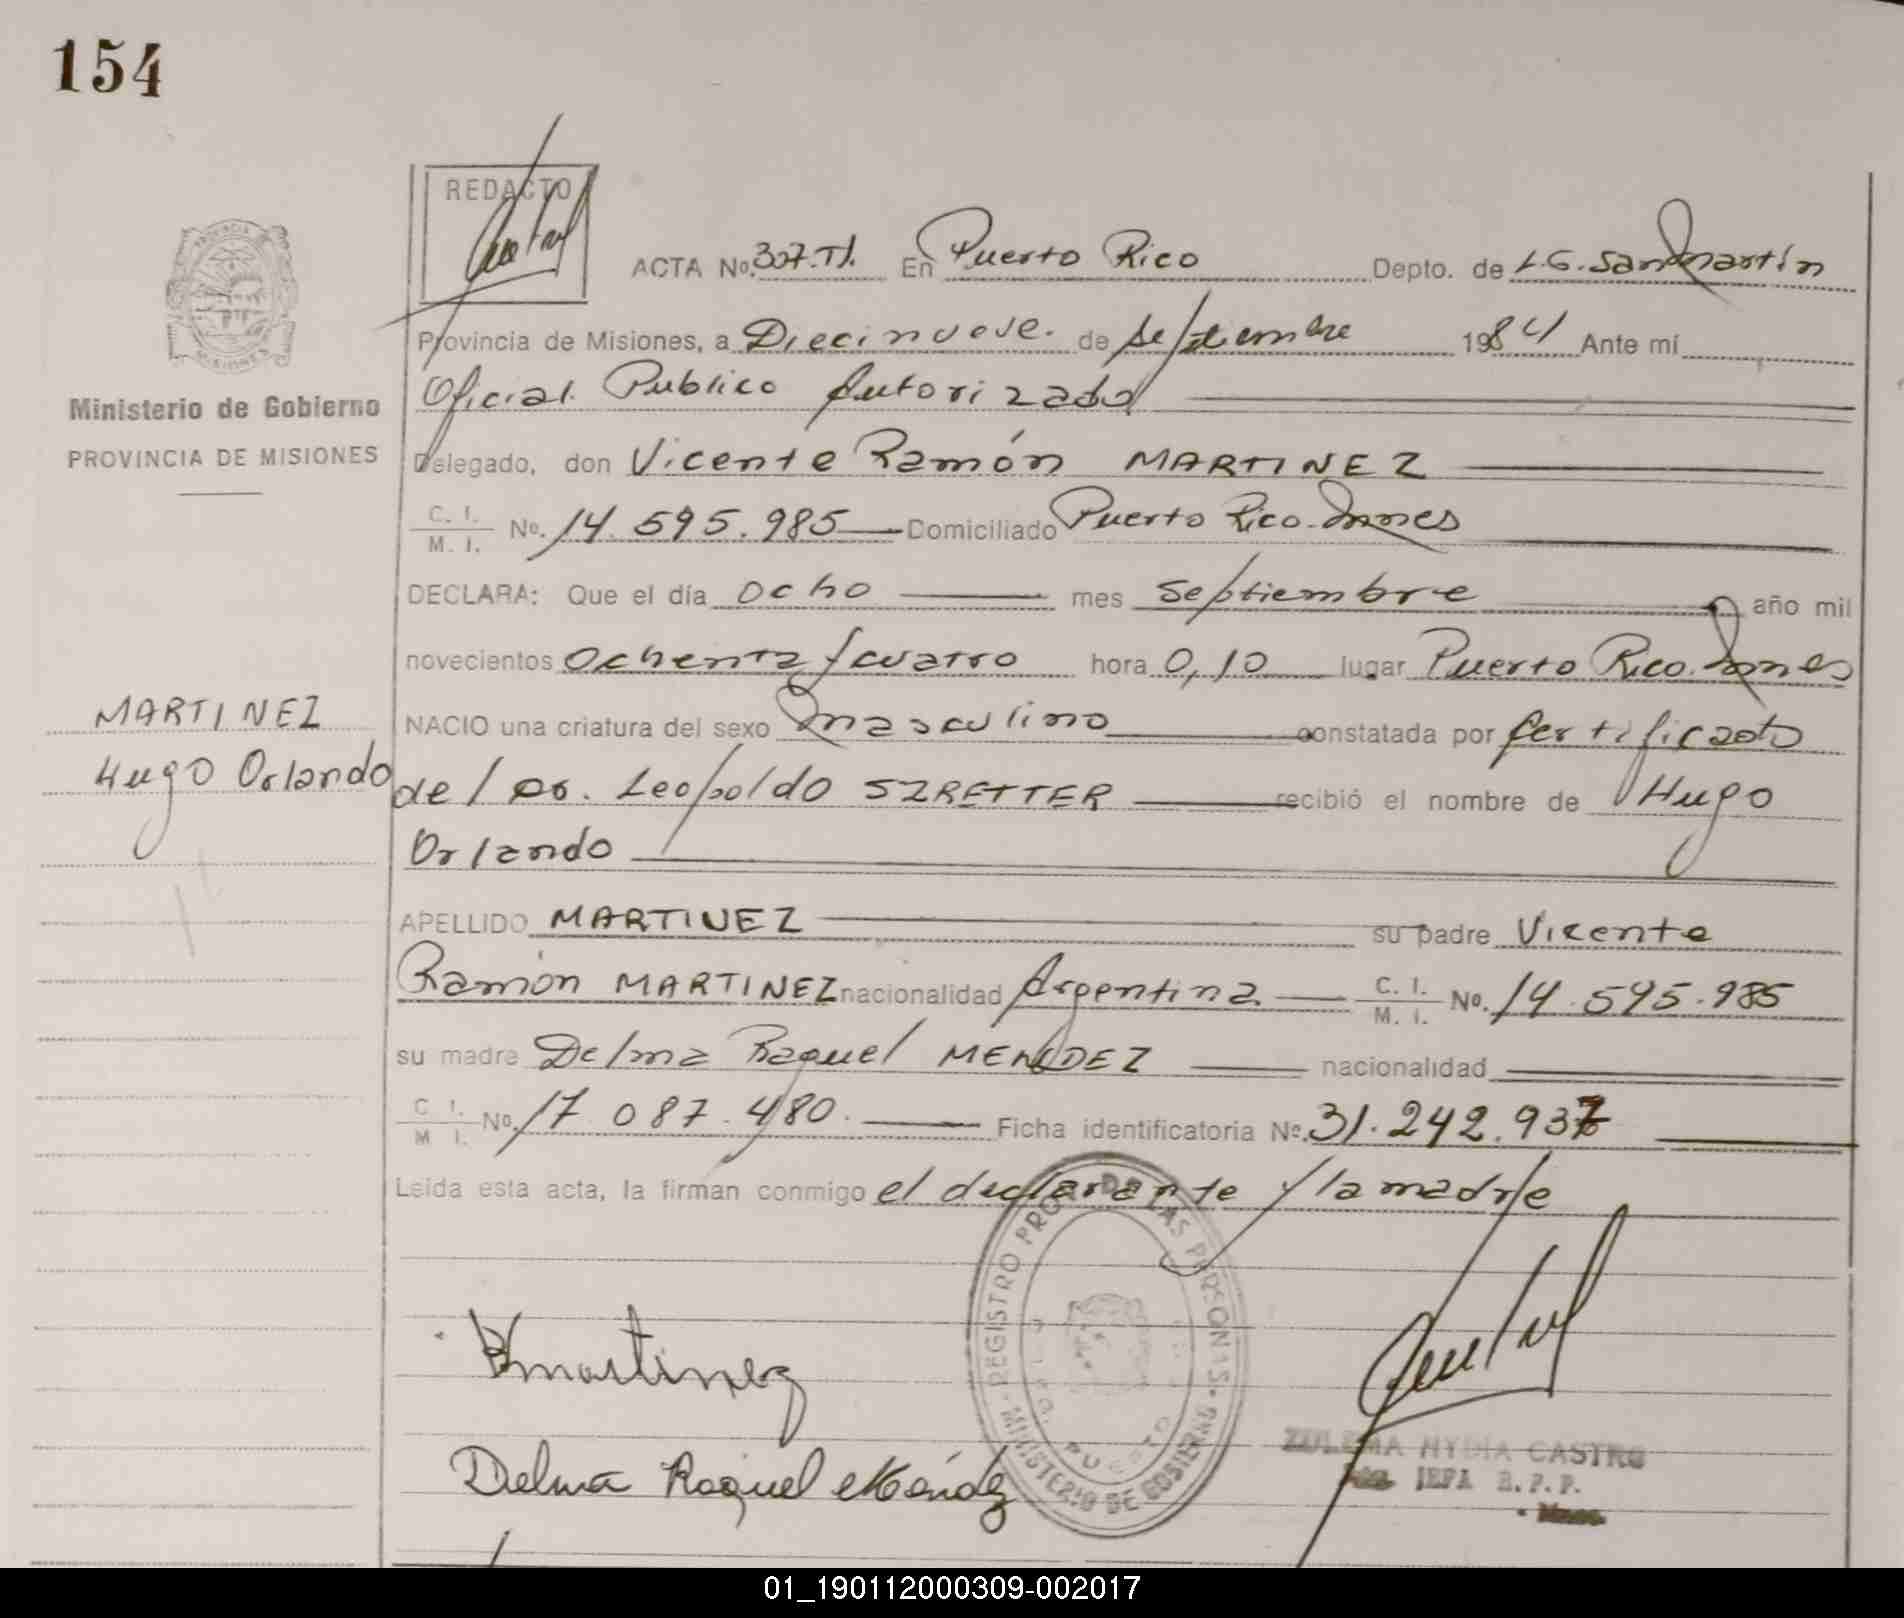 154
REDACTO
ACTA No. 307.TI. En Puerto Rico Depto. de L.G. San Martín
Provincia de Misiones, a Diecinueve. de Septiembre 1984 Ante mí
Oficial Publico Autorizado
Ministerio de Gobierno
PROVINCIA DE MISIONES
Delegado, don Vicente Ramón MARTINEZ
C. I. / M. I. No. 14.595.985 Domiciliado Puerto Rico. Mnes
DECLARA: Que el día ocho mes septiembre año mil
novecientos ochenta y cuatro hora 0,10 lugar Puerto Rico. Mnes
MARTINEZ
Hugo Orlando
NACIO una criatura del sexo masculino constatada por Certificado
del Dr. Leopoldo SZRETTER recibió el nombre de Hugo
Orlando
APELLIDO MARTINEZ su padre Vicente
Ramón MARTINEZ nacionalidad Argentina C. I. / M. I. No. 14.595.985
su madre Delma Raquel MENDEZ nacionalidad
C. I. / M. I. No. 17.087.480. Ficha identificatoria No. 31.242.937
Leída esta acta, la firman conmigo el declarante y la madre
REGISTRO PROV. DE LAS PERSONAS
MINISTERIO DE GOBIERNO
VMartinez
Delma Raquel Méndez
ZULEMA NYDIA CASTRO
JEFA R.P.P.
Mnes.
01_190112000309-002017